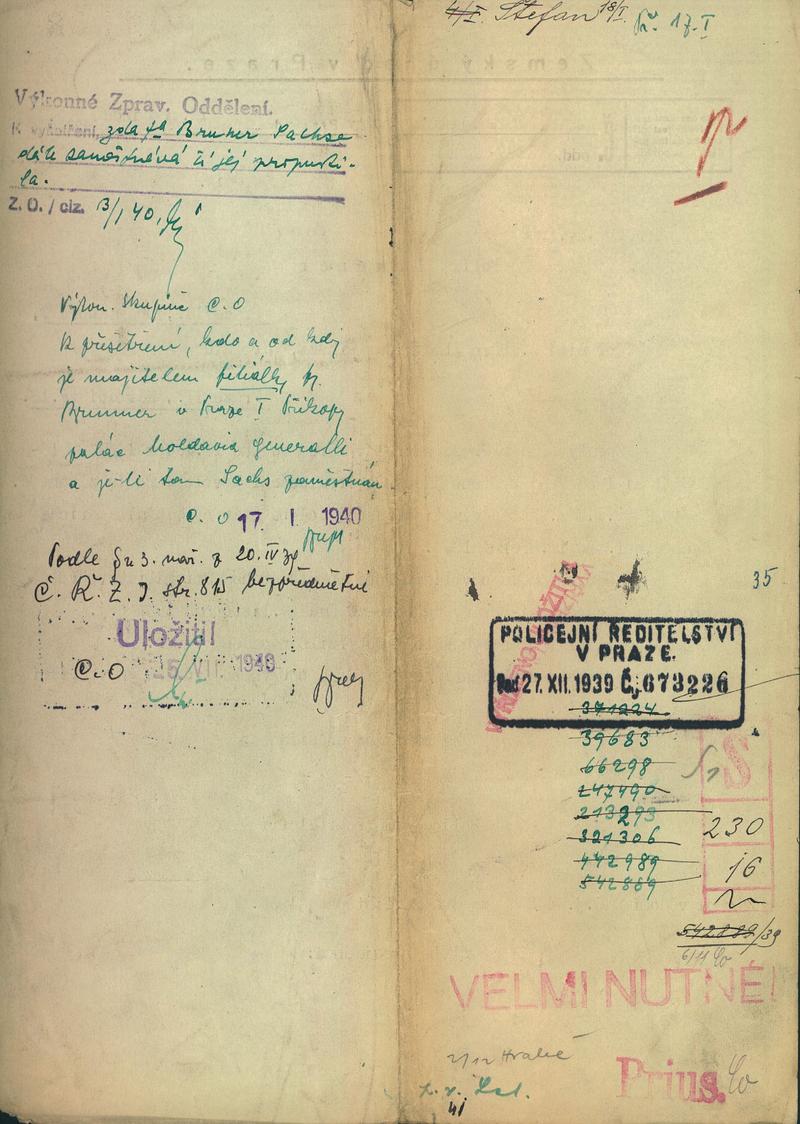 Výkonné Zprav. Oddělení.
K vyšetření, zda fa Bruner Sachse
dále zaměstnává či jej propusti-
la.
Z. O. / ciz. 3/I 40,
Výkon. Skupině C. O
K přešetření, kdo a od kdy
je majitelem filiálky fy.
Brunner v Praze I Příkopy
palác Moldavia Generalli
a je-li tam Sachs zaměstnán.
C. O 17. I. 1940
Podle § 3. nař. z 20. IV 39
Č. Ř. Ž. J. str. 815 bezpředmětné
Uložiti!
C. O 1940
4/I. Štefan 18/I. 17. I
35
POLICEJNÍ ŘEDITELSTVÍ
V PRAZE.
27. XII. 1939 Č. j. 673226
371224
39683
66298
247490
213293
321306
442989
542889
S
230
16
542889/39
6/11
VELMI NUTNÉ!
2/12 Hrabě
Prius.
41